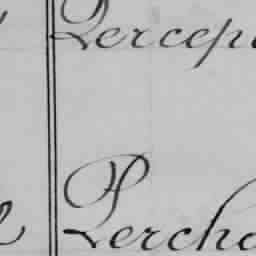 Percep
Perche